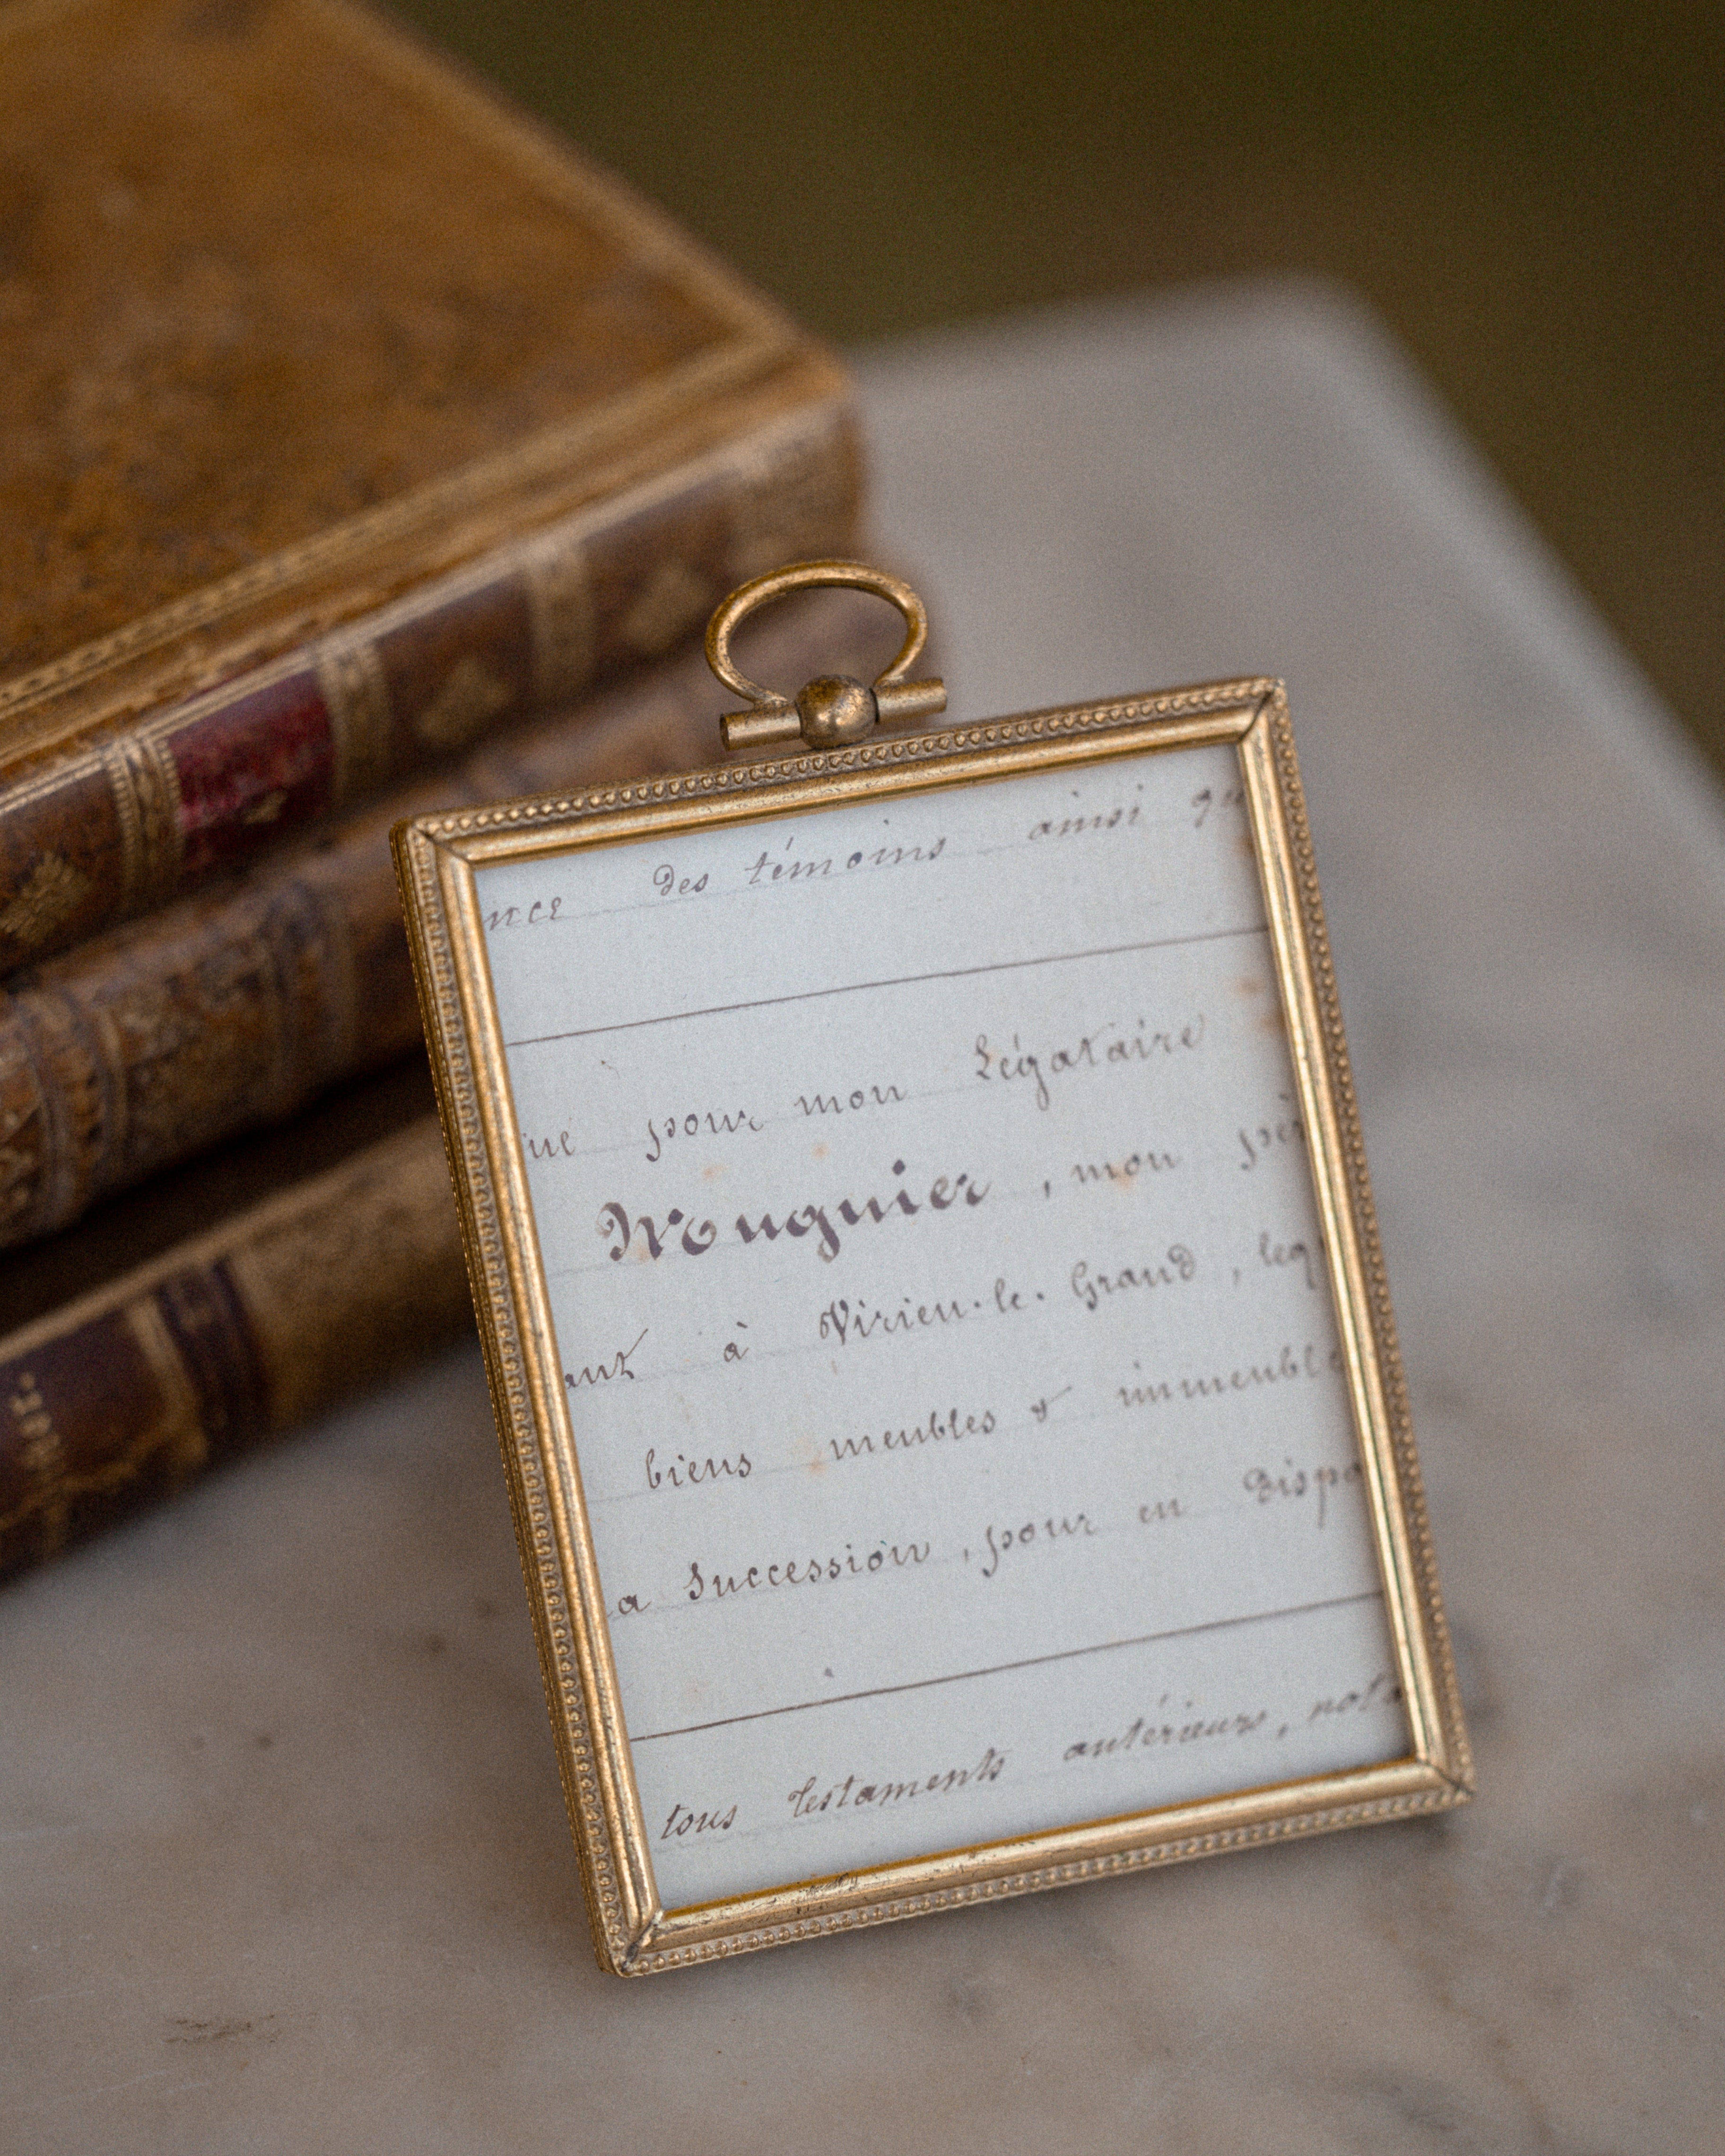 nce des témoins ainsi qu
ue pour mon Légataire
Mouguier, mon pè
ant à Virieu-le-Grand, leq
biens meubles & immeuble
a Succession, pour en dispo
tous Testaments antérieurs, nota